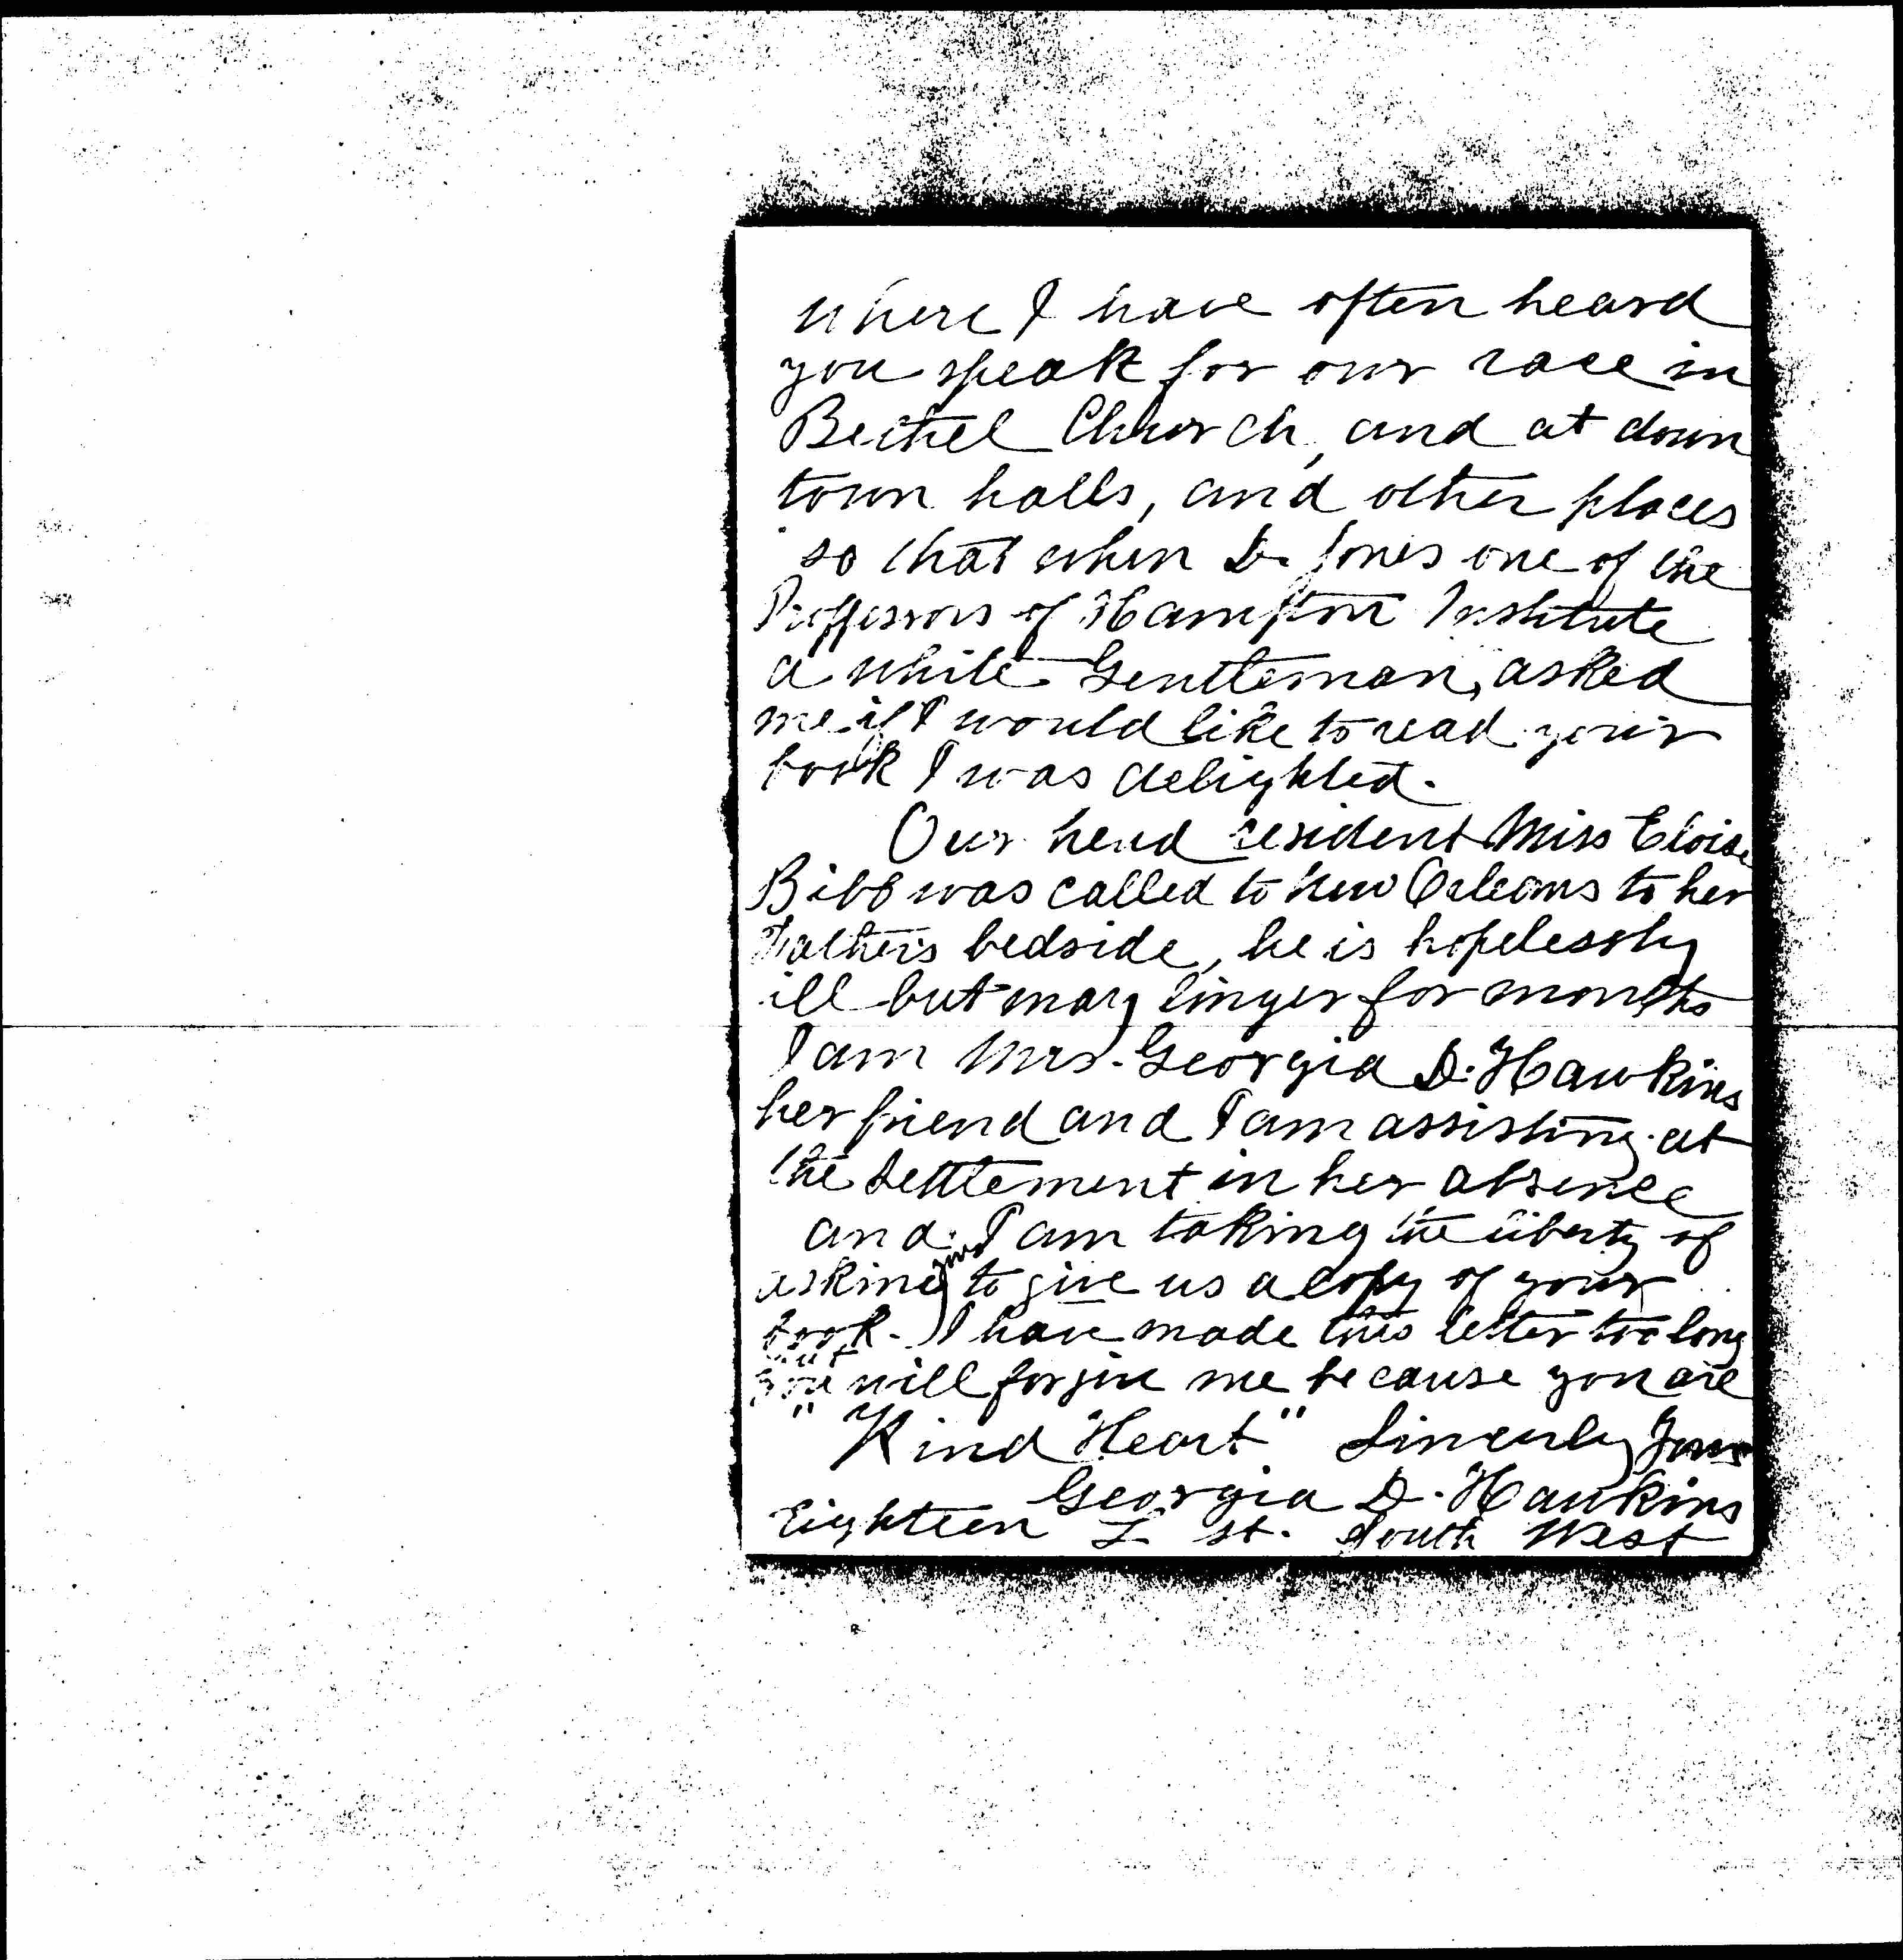 where I have often heard
you speak for our race in
Bethel Church, and at down
town halls, and other places
so that when Dr. Jones one of the
Proffessors of Hampton Institute
a white Gentleman, asked
me if I would like to read your
book I was delighted.
Our head resident Miss Eloise
Bibb was called to New Orleans to her
Father's bedside, he is hopelessly
ill but may linger for months
I am Mrs. Georgia D. Hawkins
her friend and I am assisting at
the Settlement in her absence
and I am taking the liberty of
asking you to give us a copy of your
book. I have made this letter too long
but
you will forgive me because you are
"Kind Heart" Sincerely Yours
Georgia D. Hawkins
Eighteen L St. South West